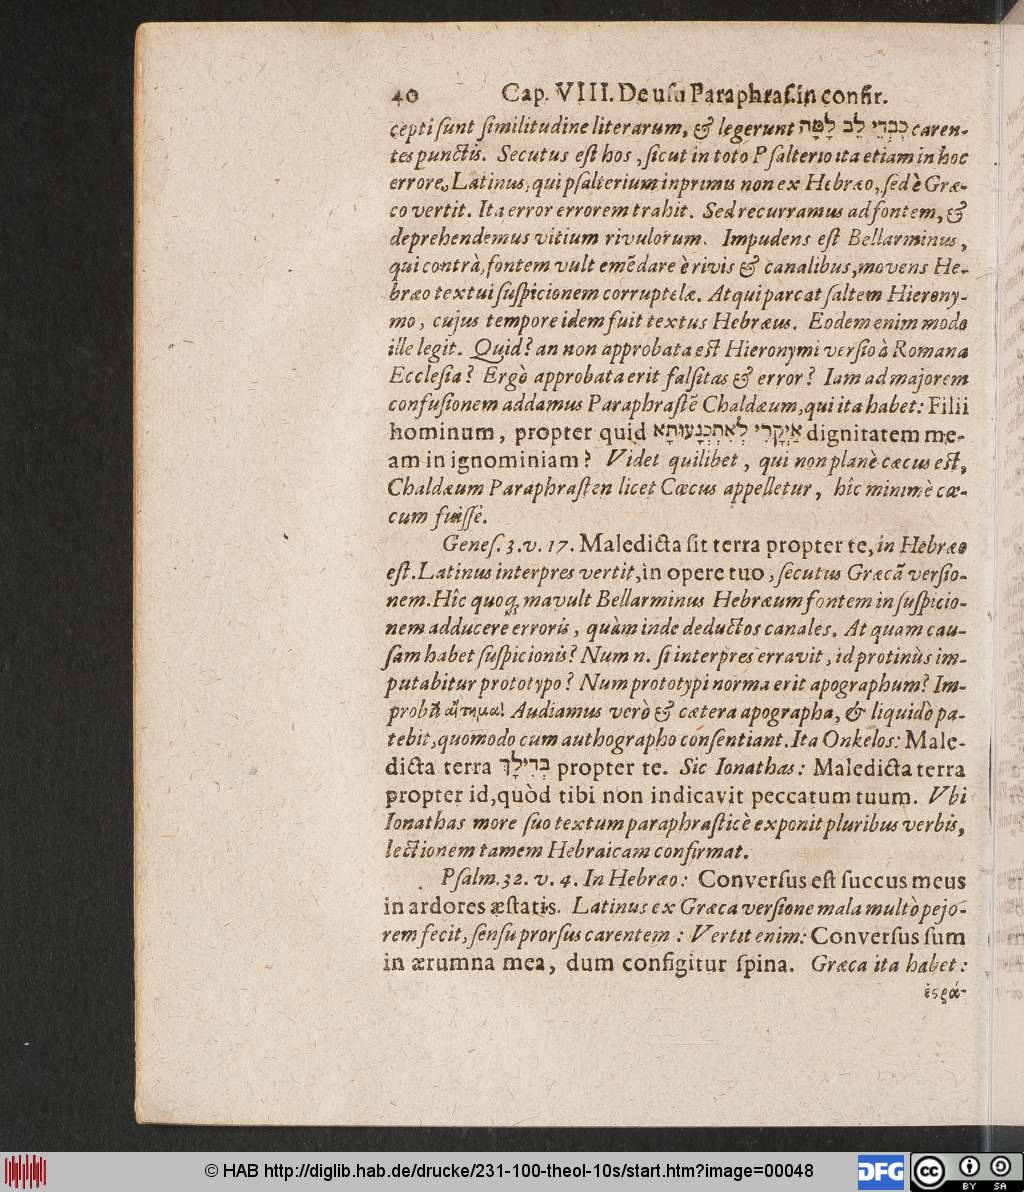 40 Cap. VIII. De uſu Paraphraſ. in confir.
cepti ſunt ſimilitudine literarum, & legerunt כִּבְדֵי לֵב לָמָּה caren-
tes punctis. Secutus eſt hos, ſicut in toto Pſalterio ita etiam in hoc
errore, Latinus, qui pſalterium inprimis non ex Hebræo, ſed è Græ-
co vertit. Ita error errorem trahit. Sed recurramus ad fontem, &
deprehendemus vitium rivulorum. Impudens eſt Bellarminus,
qui contrà, fontem vult emẽdare è rivis & canalibus, movens He-
bræo textui ſuſpicionem corruptelæ. Atqui parcat ſaltem Hierony-
mo, cujus tempore idem fuit textus Hebræus. Eodem enim modo
ille legit. Quid? an non approbata eſt Hieronymi verſio à Romana
Eccleſia? Ergò approbata erit falſitas & error? Iam ad majorem
confuſionem addamus Paraphraſtẽ Chaldæum, qui ita habet: Filii
hominum, propter quid אַיְקָרִי לְאִתְכְּנָעוּתָא dignitatem me-
am in ignominiam? Videt quilibet, qui non planè cæcus eſt,
Chaldæum Paraphraſten licet Cæcus appelletur, hîc minimè cæ-
cum fuiſſe.
Geneſ. 3. v. 17. Maledicta ſit terra propter te, in Hebræo
eſt. Latinus interpres vertit, in opere tuo, ſecutus Græcã verſio-
nem. Hîc quoq; mavult Bellarminus Hebræum fontem in ſuſpicio-
nem adducere erroris, quàm inde deductos canales. At quam cau-
ſam habet ſuſpicionis? Num n. ſi interpres erravit, id protinùs im-
putabitur prototypo? Num prototypi norma erit apographum? Im-
probũ αἴτημα! Audiamus verò & cætera apographa, & liquidò pa-
tebit, quomodo cum authographo conſentiant. Ita Onkelos: Male-
dicta terra בְּדִילָךְ propter te. Sic Ionathas: Maledicta terra
propter id, quòd tibi non indicavit peccatum tuum. Vbi
Ionathas more ſuo textum paraphraſticè exponit pluribus verbis,
lectionem tamem Hebraicam confirmat.
Pſalm. 32. v. 4. In Hebræo: Converſus eſt ſuccus meus
in ardores æſtatis. Latinus ex Græca verſione mala multò pejo-
rem fecit, ſenſu prorſus carentem: Vertit enim: Converſus ſum
in ærumna mea, dum configitur ſpina. Græca ita habet:
ἐςρά-
© HAB http://diglib.hab.de/drucke/231-100-theol-10s/start.htm?image=00048
DFG
cc BY SA